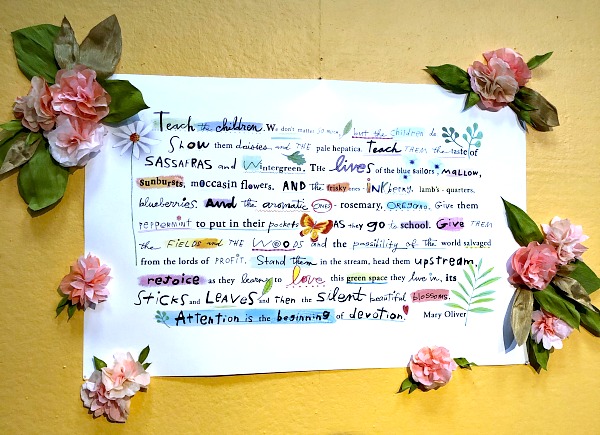 Teach the children. We don't matter so much, but the children do.
Show them daisies and THE pale hepatica. Teach THEM the taste of
SASSAFRAS and Wintergreen. THe lives of the blue sailors, mallow,
sunbursts, moccasin flowers. AND the frisky ones - inkberry, lamb's - quarters,
blueberries. And the aromatic ONES - rosemary, OREGANO. Give them
PEPPERMINT to put in their pockets AS they go to school. Give THEM
the FIELDS and THE WOODS and the possibility of the world salvaged
from the lords of PROFIT. Stand them in the stream, head them upstream,
rejoice as they learn to love this green space they live in, its
Sticks and LEAVES and then the Silent beautiful blossoms.
Attention is the beginning of devotion.
Mary Oliver